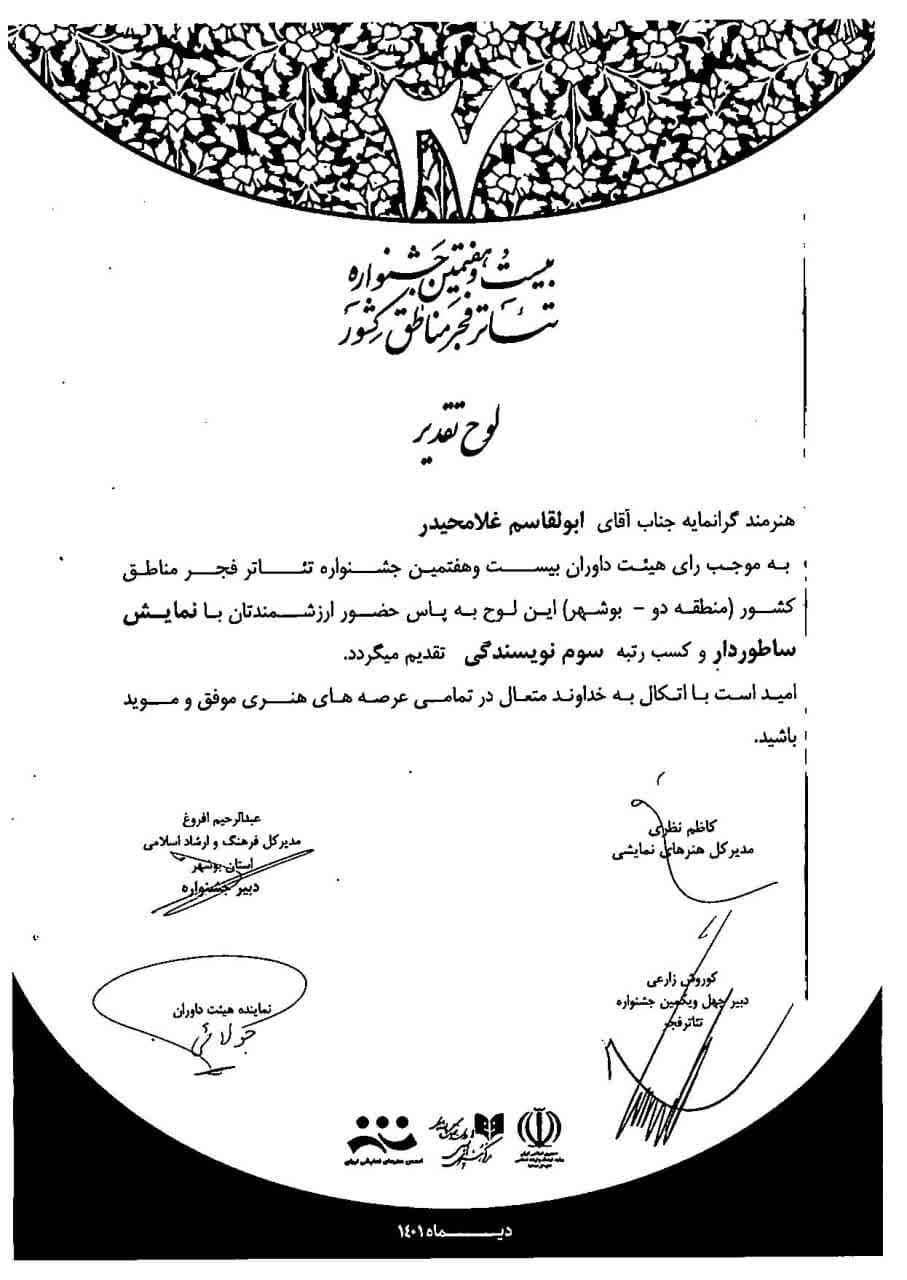 ۲۷
بیست و هفتمین جشنواره
تئاتر فجر مناطق کشور
لوح تقدیر
هنرمند گرانمایه جناب آقای ابولقاسم غلامحیدر
به موجب رای هیئت داوران بیست وهفتمین جشنواره تئاتر فجر مناطق
کشور (منطقه دو - بوشهر) این لوح به پاس حضور ارزشمندتان با نمایش
ساطوردار و کسب رتبه سوم نویسندگی تقدیم میگردد.
امید است با اتکال به خداوند متعال در تمامی عرصه های هنری موفق و موید
باشید.
کاظم نظری
مدیرکل هنرهای نمایشی
عبدالرحیم افروغ
مدیرکل فرهنگ و ارشاد اسلامی
استان بوشهر
دبیر جشنواره
کوروش زارعی
دبیر چهل ویکمین جشنواره
تئاترفجر
نماینده هیئت داوران
جولائی
انجمن هنرهای نمایشی ایران
جمهوری اسلامی ایران
وزارت فرهنگ و ارشاد اسلامی
دیماه ۱۴۰۱